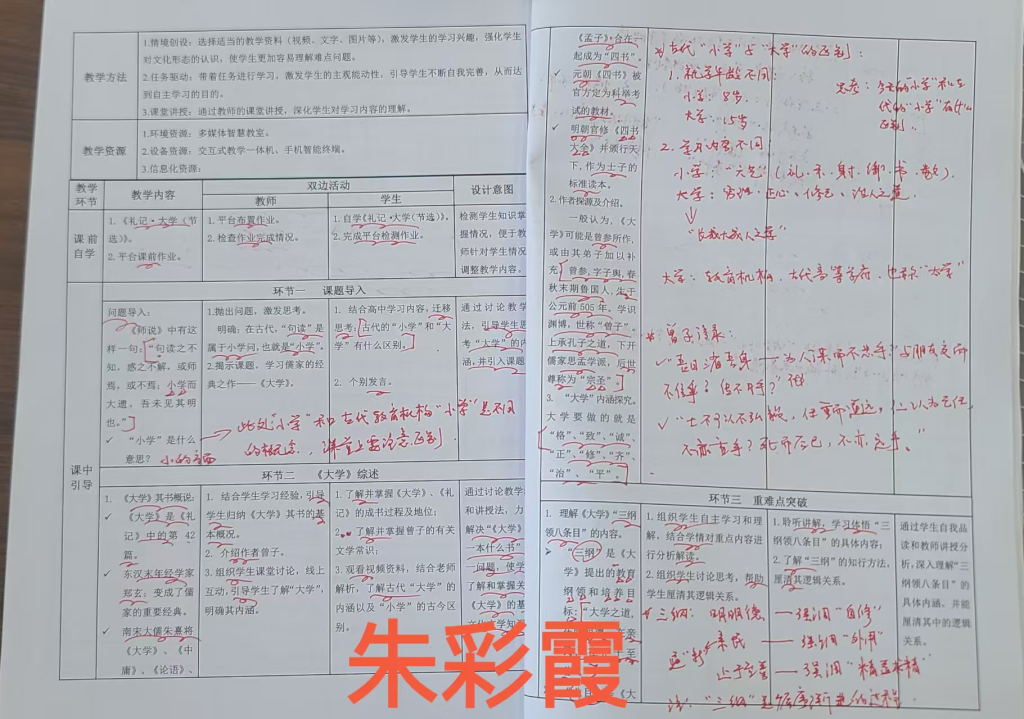 教学方法
1.情境创设：选择适当的教学资料（视频、文字、图片等），激发学生的学习兴趣，强化学生
对文化形态的认识，使学生更加容易理解难点问题。
2.任务驱动：带着任务进行学习，激发学生的主观能动性，引导学生不断自我完善，从而达
到自主学习的目的。
3.课堂讲授：通过教师的课堂讲授，深化学生对学习内容的理解。
教学资源
1.环境资源：多媒体智慧教室。
2.设备资源：交互式教学一体机、手机智能终端。
3.信息化资源：
教学
环节
教学内容
双边活动
教师
学生
设计意图
课 前
自学
1.《礼记·大学（节
选）》。
2.平台课前作业。
1.平台布置作业。
2.检查作业完成情况。
1.自学《礼记·大学（节选）》。
2.完成平台检测作业。
检测学生知识掌
握情况，便于教
师针对学生情况
调整教学内容。
课中
引导
环节一 课题导入
问题导入：
《师说》中有这
样一句：“句读之不
知，惑之不解，或师
焉，或不焉，小学而
大遗，吾未见其明
也。”
✓ “小学”是什么
意思？
1.抛出问题，激发思考。
明确：在古代，“句读”是
属于小学问，也就是“小学”。
2.揭示课题，学习儒家的经
典之作——《大学》。
1. 结合高中学习内容，迁移
思考：古代的“小学”和“大
学”有什么区别。
2. 个别发言。
通过讨论教学
法，引导学生思
考“大学”的内
涵，并引入课题
此处“小学”和古代教育机构“小学”是不同
的概念，课堂上要注意区别
小的方面
环节二 《大学》综述
1. 《大学》其书概说：
✓ 《大学》是《礼
记》中的第 42
篇。
✓ 东汉末年经学家
郑玄：变成了儒
家的重要经典。
✓ 南宋大儒朱熹将
《大学》、《中
庸》、《论语》、
1. 结合学生学习经验，引导
学生归纳《大学》其书的基
本概况。
2. 介绍作者曾子。
3. 组织学生课堂讨论，线上
互动，引导学生了解“大学”，
明确其内涵。
1.了解并掌握《大学》、《礼
记》的成书过程及地位；
2. 了解并掌握曾子的有关
文学常识；
3.观看视频资料，结合老师
解析，了解古代“大学”的
内涵以及“小学”的古今区
别。
通过讨论教学
和讲授法，力
解决“《大学》
一本什么书”
一问题，使学
了解和掌握关
《大学》的基
《孟子》合在一
起成为“四书”。
✓ 元朝《四书》被
官方定为科举考
试的教材。
✓ 明朝官修《四书
大全》并颁行天
下，作为士子的
标准读本。
2.作者探源及介绍。
一般认为，《大
学》可能是曾参所作，
或由其弟子加以补
充。曾参，字子舆，春
秋末期鲁国人，生于
公元前 505 年，学识
渊博，世称“曾子”，
上承孔子之道，下开
儒家思孟学派，后世
尊称为“宗圣”。
3. “大学”内涵探究。
大学要做的就是
“格”、“致”、“诚”、
“正”、“修”、“齐”、
“治”、“平”。
古代“小学”与“大学”的区别：
1. 就学年龄不同：
小学：8岁。
大学：15岁。
2. 学习内容不同
小学：“六艺”（礼、乐、射、御、书、数）。
大学：穷理、正心、修己、治人之道
“长成大成人之学”
思考：今天的“小学”和古
代的“小学”有什么
区别。
大学：教育机构，古代高等学府，也称“太学”
曾子语录：
✓“吾日三省吾身——为人谋而不忠乎？与朋友交而
不信乎？传不习乎？
✓“士不可以不弘毅，任重而道远，仁以为己任，
不亦重乎？死而后已，不亦远乎。”
环节三 重难点突破
1. 理解《大学》“三纲
领八条目”的内容。
“三纲”是《大
学》提出的教育
纲领和培养目
标：“大学之道，
1. 组织学生自主学习和理
解，结合学情对重点内容进
行分析解读。
2. 组织学生讨论思考，帮助
学生厘清其逻辑关系。
1.聆听讲解，学习体悟“三
纲领八条目”的具体内容；
2.了解“三纲”的知行方法，
厘清其逻辑关系。
通过学生自我品
读和教师讲授分
析，深入理解“三
纲领八条目”的
具体内涵，并能
厘清其中的逻辑
关系。
三纲：明明德——强调“自修”
亲民——强调“外用”
止于至善——强调“精益求精”
注：“三纲”是循序渐进的过程
朱彩霞